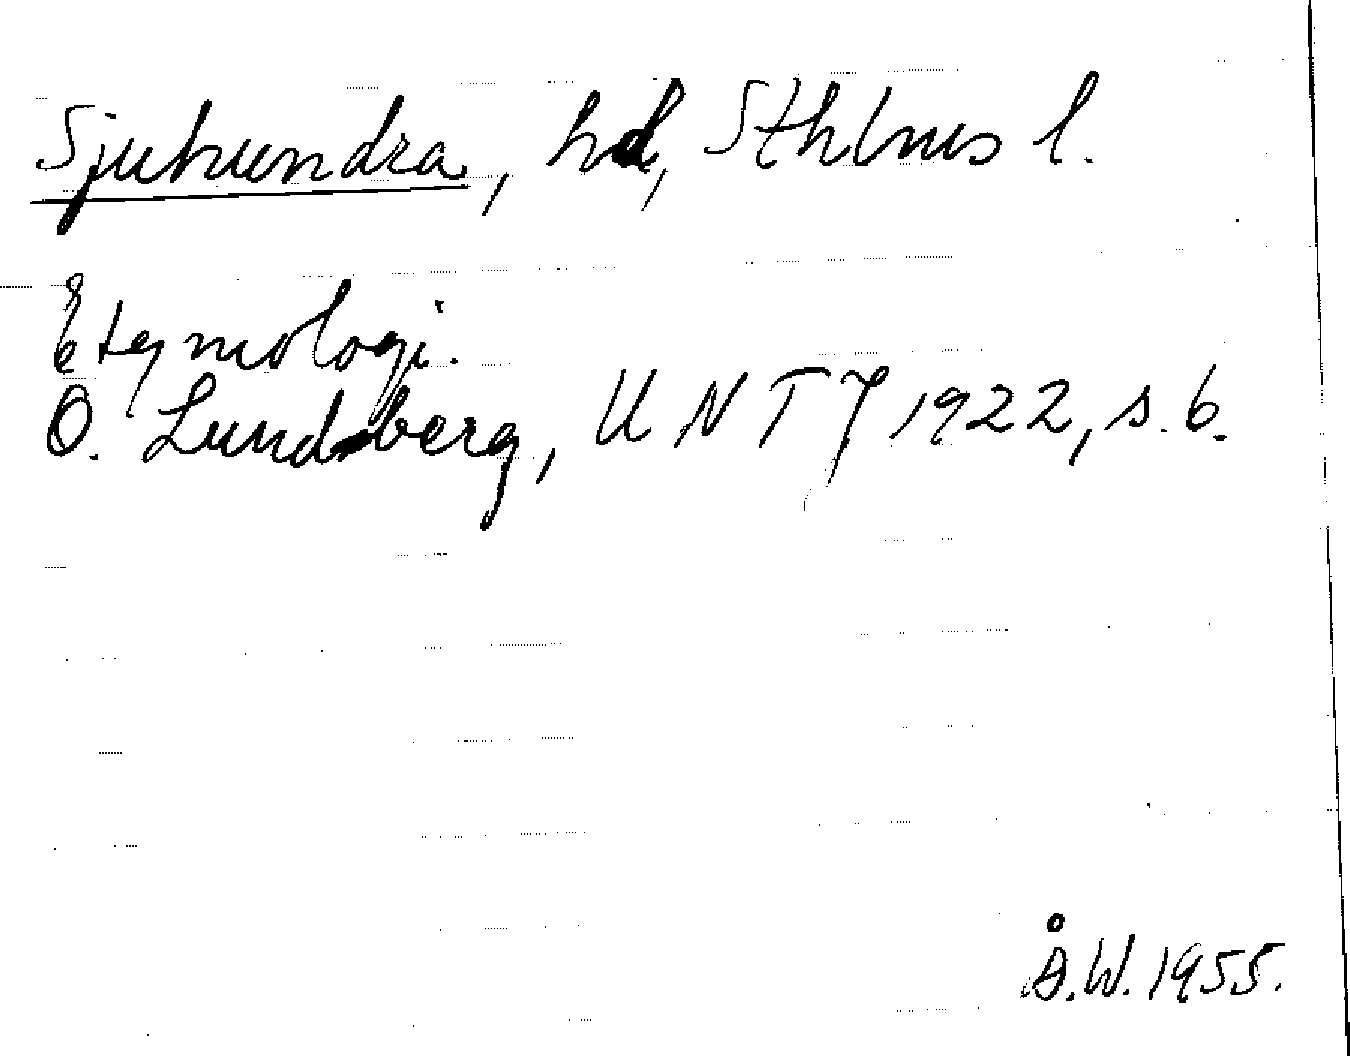 Sjuhundra, hd, Sthlms l.
Etymologi.
O. Lundberg, UNT 7/1922, s. 6.
Å.W. 1955.